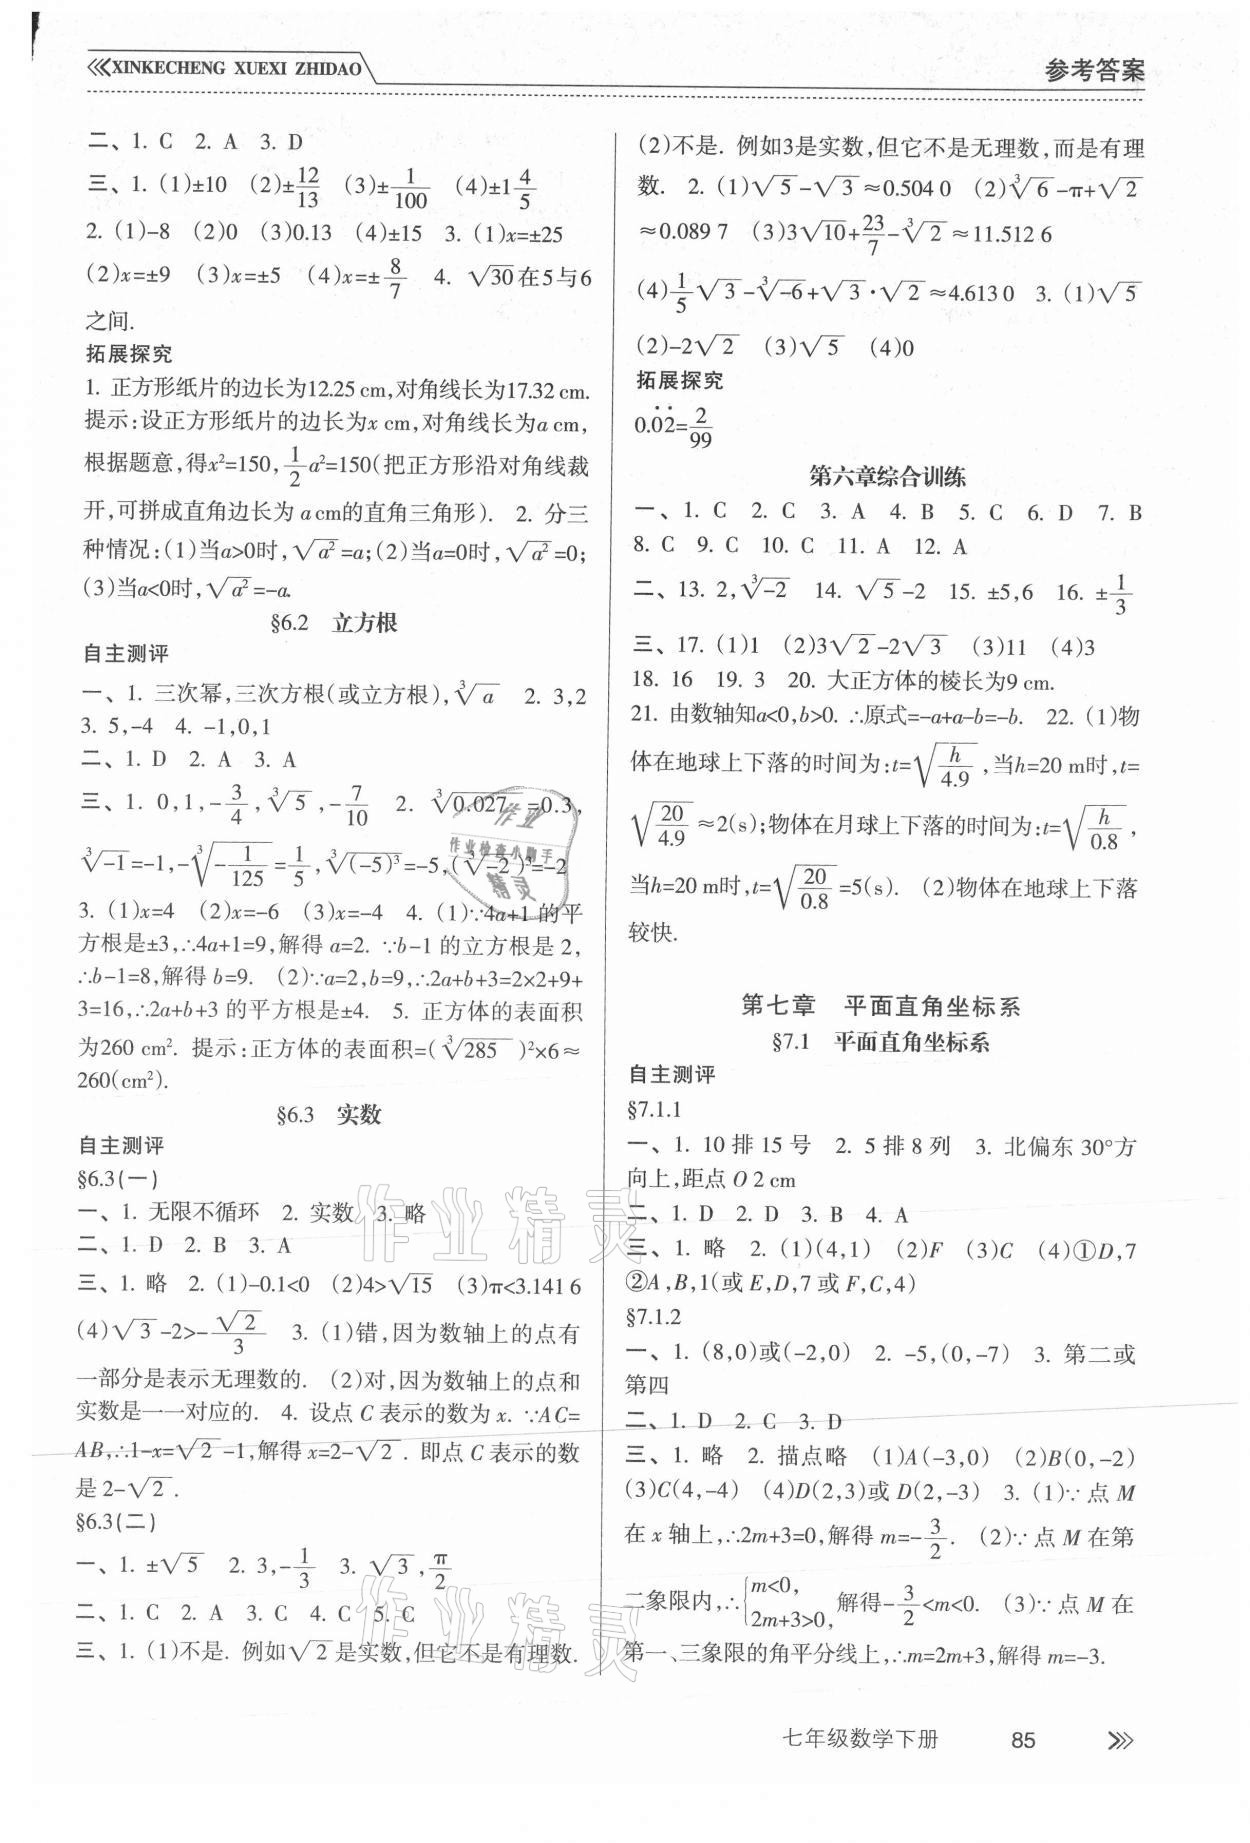 XINKECHENG XUEXI ZHIDAO
参考答案
二、1. C 2. A 3. D
三、1. (1)±10 (2)±12/13 (3)±1/100 (4)±1 4/5
2. (1)-8 (2)0 (3)0.13 (4)±15 3. (1)x=±25
(2)x=±9 (3)x=±5 (4)x=±8/7 4. √30在5与6
之间.
拓展探究
1. 正方形纸片的边长为12.25 cm,对角线长为17.32 cm.
提示:设正方形纸片的边长为x cm,对角线长为a cm,
根据题意,得x²=150, 1/2 a²=150(把正方形沿对角线裁
开,可拼成直角边长为 a cm的直角三角形). 2. 分三
种情况:(1)当a>0时,√a²=a;(2)当a=0时,√a²=0;
(3)当a<0时,√a²=-a.
§6.2 立方根
自主测评
一、1. 三次幂,三次方根(或立方根),∛a 2. 3,2
3. 5,-4 4. -1,0,1
二、1. D 2. A 3. A
三、1. 0,1,-3/4,∛5,-7/10 2. ∛0.027=0.3,
∛-1=-1,-∛(-1/125)=1/5,∛(-5)³=-5,(∛-2)³=-2
3. (1)x=4 (2)x=-6 (3)x=-4 4. (1)∵4a+1 的平
方根是±3,∴4a+1=9,解得 a=2. ∵b-1 的立方根是 2,
∴b-1=8,解得 b=9. (2)∵a=2,b=9,∴2a+b+3=2×2+9+
3=16,∴2a+b+3 的平方根是±4. 5. 正方体的表面积
为260 cm². 提示:正方体的表面积=(∛285)²×6≈
260(cm²).
§6.3 实数
自主测评
§6.3(一)
一、1. 无限不循环 2. 实数 3. 略
二、1. D 2. B 3. A
三、1. 略 2. (1)-0.1<0 (2)4>√15 (3)π<3.141 6
(4)√3-2>-√2/3 3. (1)错,因为数轴上的点有
一部分是表示无理数的. (2)对,因为数轴上的点和
实数是一一对应的. 4. 设点 C 表示的数为 x. ∵AC=
AB,∴1-x=√2-1,解得 x=2-√2. 即点 C 表示的数
是 2-√2.
§6.3(二)
一、1. ±√5 2. 3,-1/3 3. √3,π/2
二、1. C 2. A 3. C 4. C 5. C
三、1. (1)不是. 例如√2是实数,但它不是有理数.
(2)不是. 例如3是实数,但它不是无理数,而是有理
数. 2. (1)√5-√3≈0.504 0 (2)∛6-π+√2
≈0.089 7 (3)3√10+23/7-∛2≈11.512 6
(4)1/5√3-∛-6+√3·√2≈4.613 0 3. (1)√5
(2)-2√2 (3)√5 (4)0
拓展探究
0.0̇2̇=2/99
第六章综合训练
一、1. C 2. C 3. A 4. B 5. C 6. D 7. B
8. C 9. C 10. C 11. A 12. A
二、13. 2,∛-2 14. √5-2 15. ±5,6 16. ±1/3
三、17. (1)1 (2)3√2-2√3 (3)11 (4)3
18. 16 19. 3 20. 大正方体的棱长为9 cm.
21. 由数轴知a<0,b>0. ∴原式=-a+a-b=-b. 22. (1)物
体在地球上下落的时间为:t=√(h/4.9),当h=20 m时,t=
√(20/4.9)≈2(s);物体在月球上下落的时间为:t=√(h/0.8),
当h=20 m时,t=√(20/0.8)=5(s). (2)物体在地球上下落
较快.
第七章 平面直角坐标系
§7.1 平面直角坐标系
自主测评
§7.1.1
一、1. 10 排 15 号 2. 5 排 8 列 3. 北偏东 30°方
向上,距点 O 2 cm
二、1. D 2. D 3. B 4. A
三、1. 略 2. (1)(4,1) (2)F (3)C (4)①D,7
②A,B,1(或 E,D,7 或 F,C,4)
§7.1.2
一、1. (8,0)或(-2,0) 2. -5,(0,-7) 3. 第二或
第四
二、1. D 2. C 3. D
三、1. 略 2. 描点略 (1)A(-3,0) (2)B(0,-2)
(3)C(4,-4) (4)D(2,3)或 D(2,-3) 3. (1)∵点 M
在 x 轴上,∴2m+3=0,解得 m=-3/2. (2)∵点 M 在第
二象限内,∴{m<0, 2m+3>0, 解得-3/2<m<0. (3)∵点 M 在
第一、三象限的角平分线上,∴m=2m+3,解得 m=-3.
七年级数学下册 85
作业
作业检查小助手
精灵
作业精灵
作业精灵